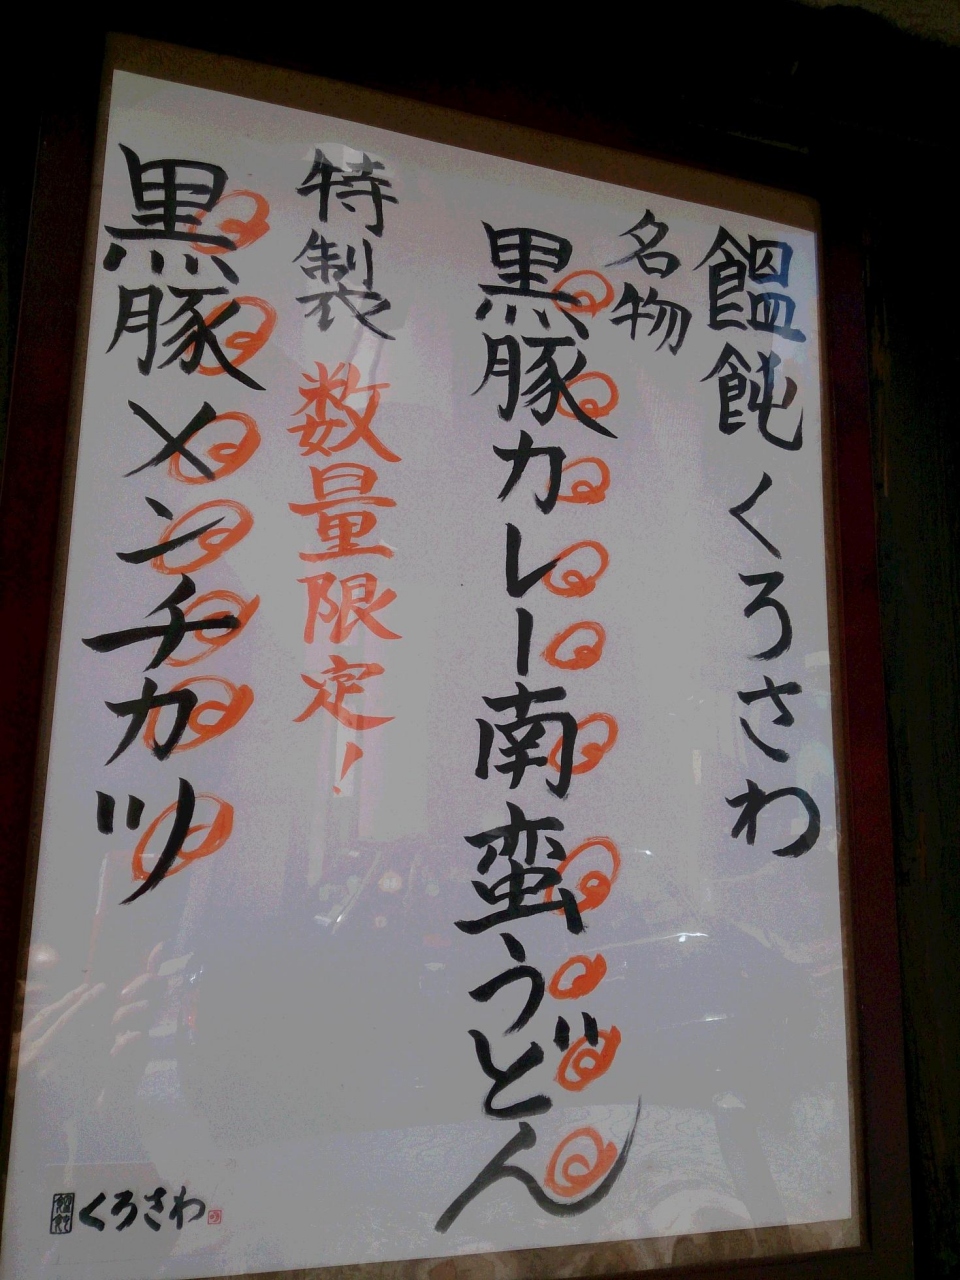 饂飩くろさわ
名物
黒豚カレー南蛮うどん
特製 数量限定！
黒豚メンチカツ
饂飩 くろさわ